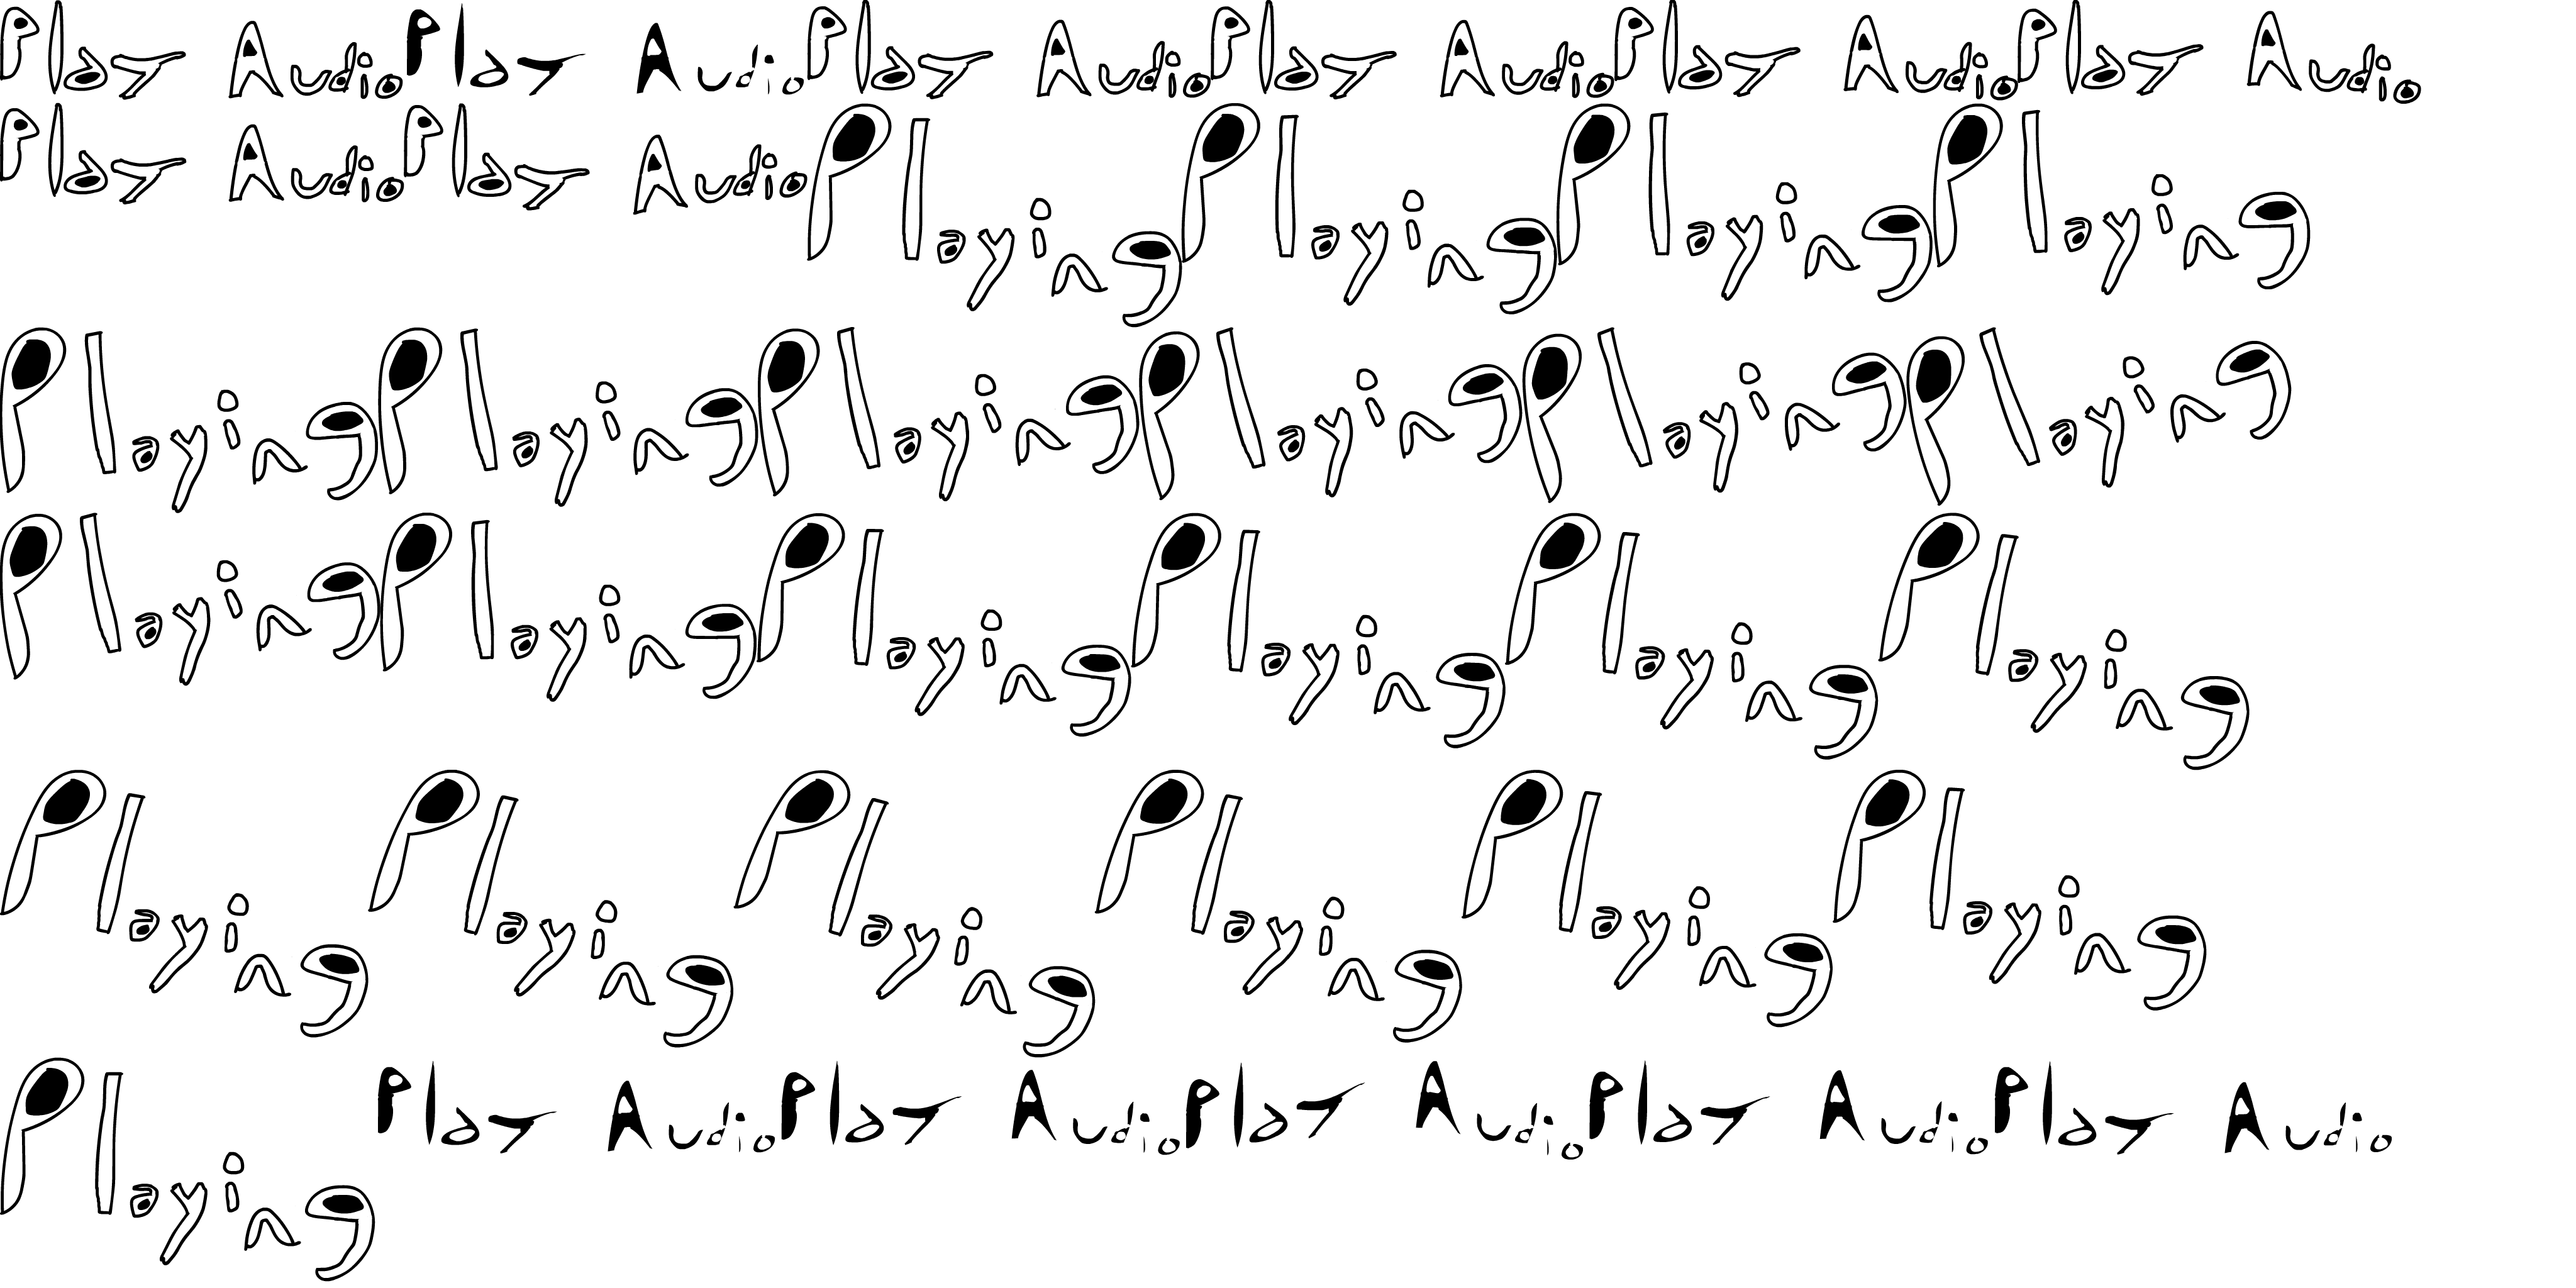 Play Audio Play Audio Play Audio Play Audio Play Audio Play Audio
Play Audio Play Audio Playing Playing Playing Playing
Playing Playing Playing Playing Playing Playing
Playing Playing Playing Playing Playing Playing
Playing Playing Playing Playing Playing Playing
Playing Play Audio Play Audio Play Audio Play Audio Play Audio